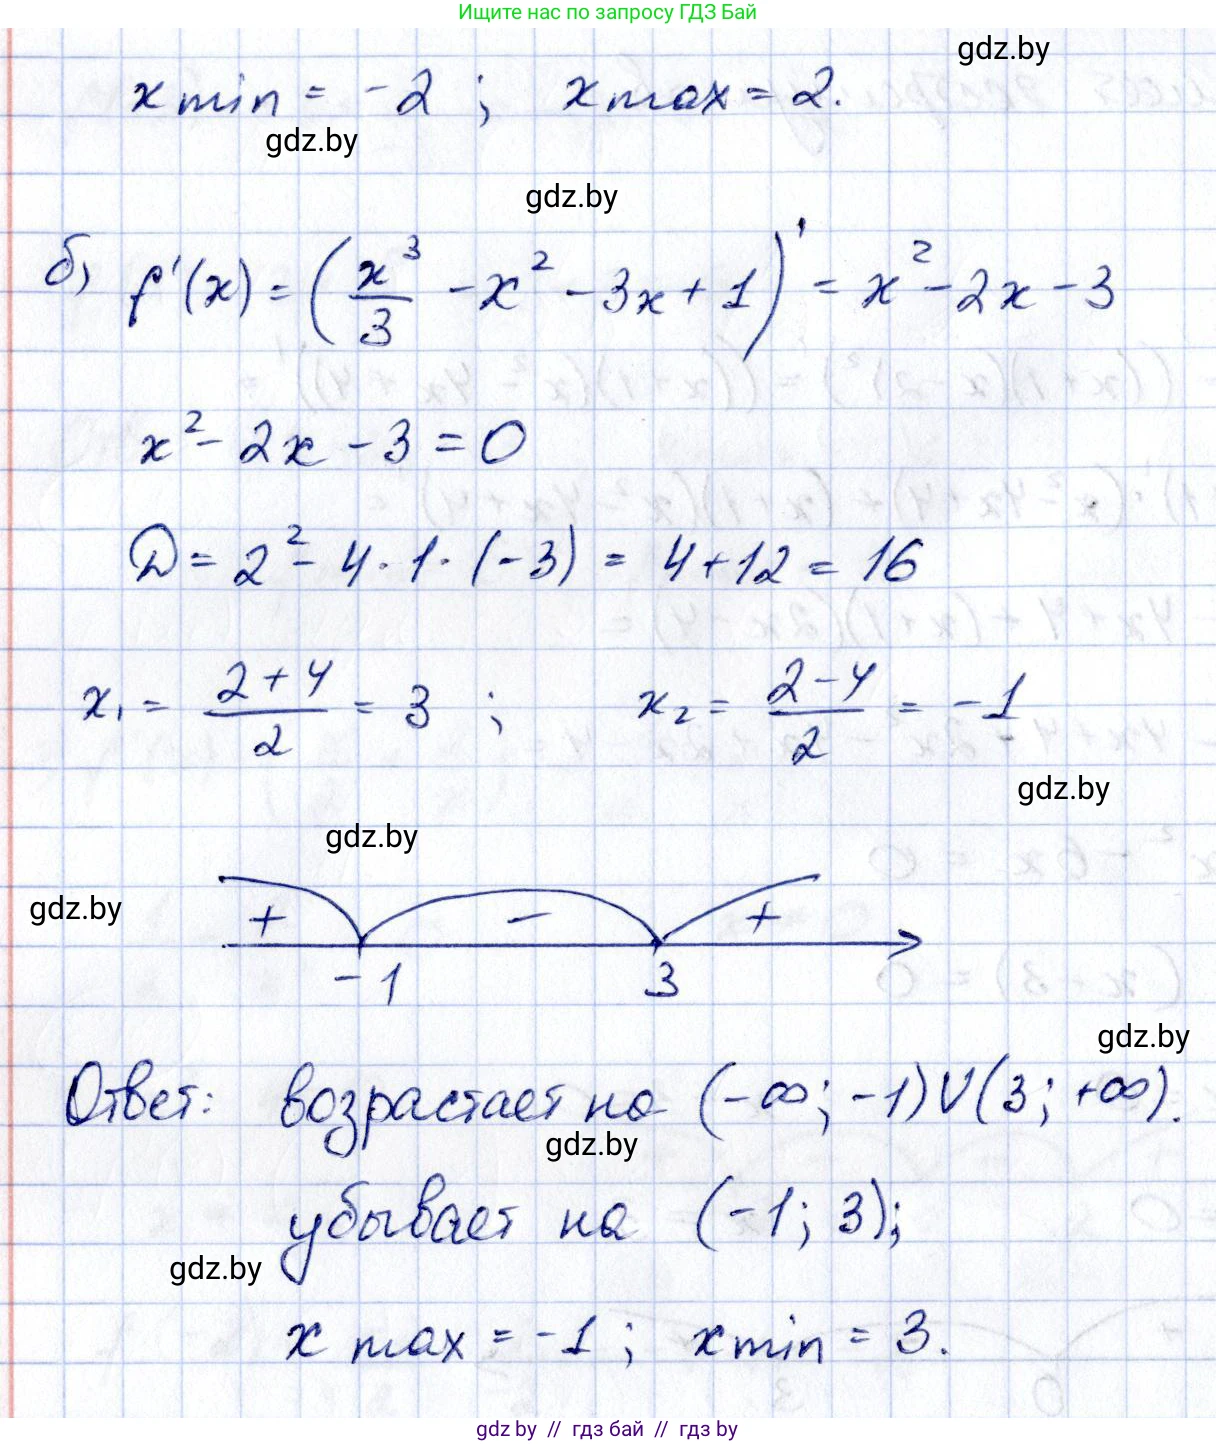 Ищите нас по запросу ГДЗ Бай
gdz.by
x min = -2 ; x max = 2.
gdz.by
gdz.by
б) f'(x) = (x³/3 - x² - 3x + 1)' = x² - 2x - 3
x² - 2x - 3 = 0
D = 2² - 4 · 1 · (-3) = 4 + 12 = 16
x₁ = (2 + 4)/2 = 3 ; x₂ = (2 - 4)/2 = -1
gdz.by
gdz.by
gdz.by
+ - +
-1 3
gdz.by
Ответ: возрастает на (-∞; -1) U (3; +∞).
gdz.by
убывает на (-1; 3);
gdz.by
x max = -1 ; x min = 3.
gdz.by // гдз бай // гдз by